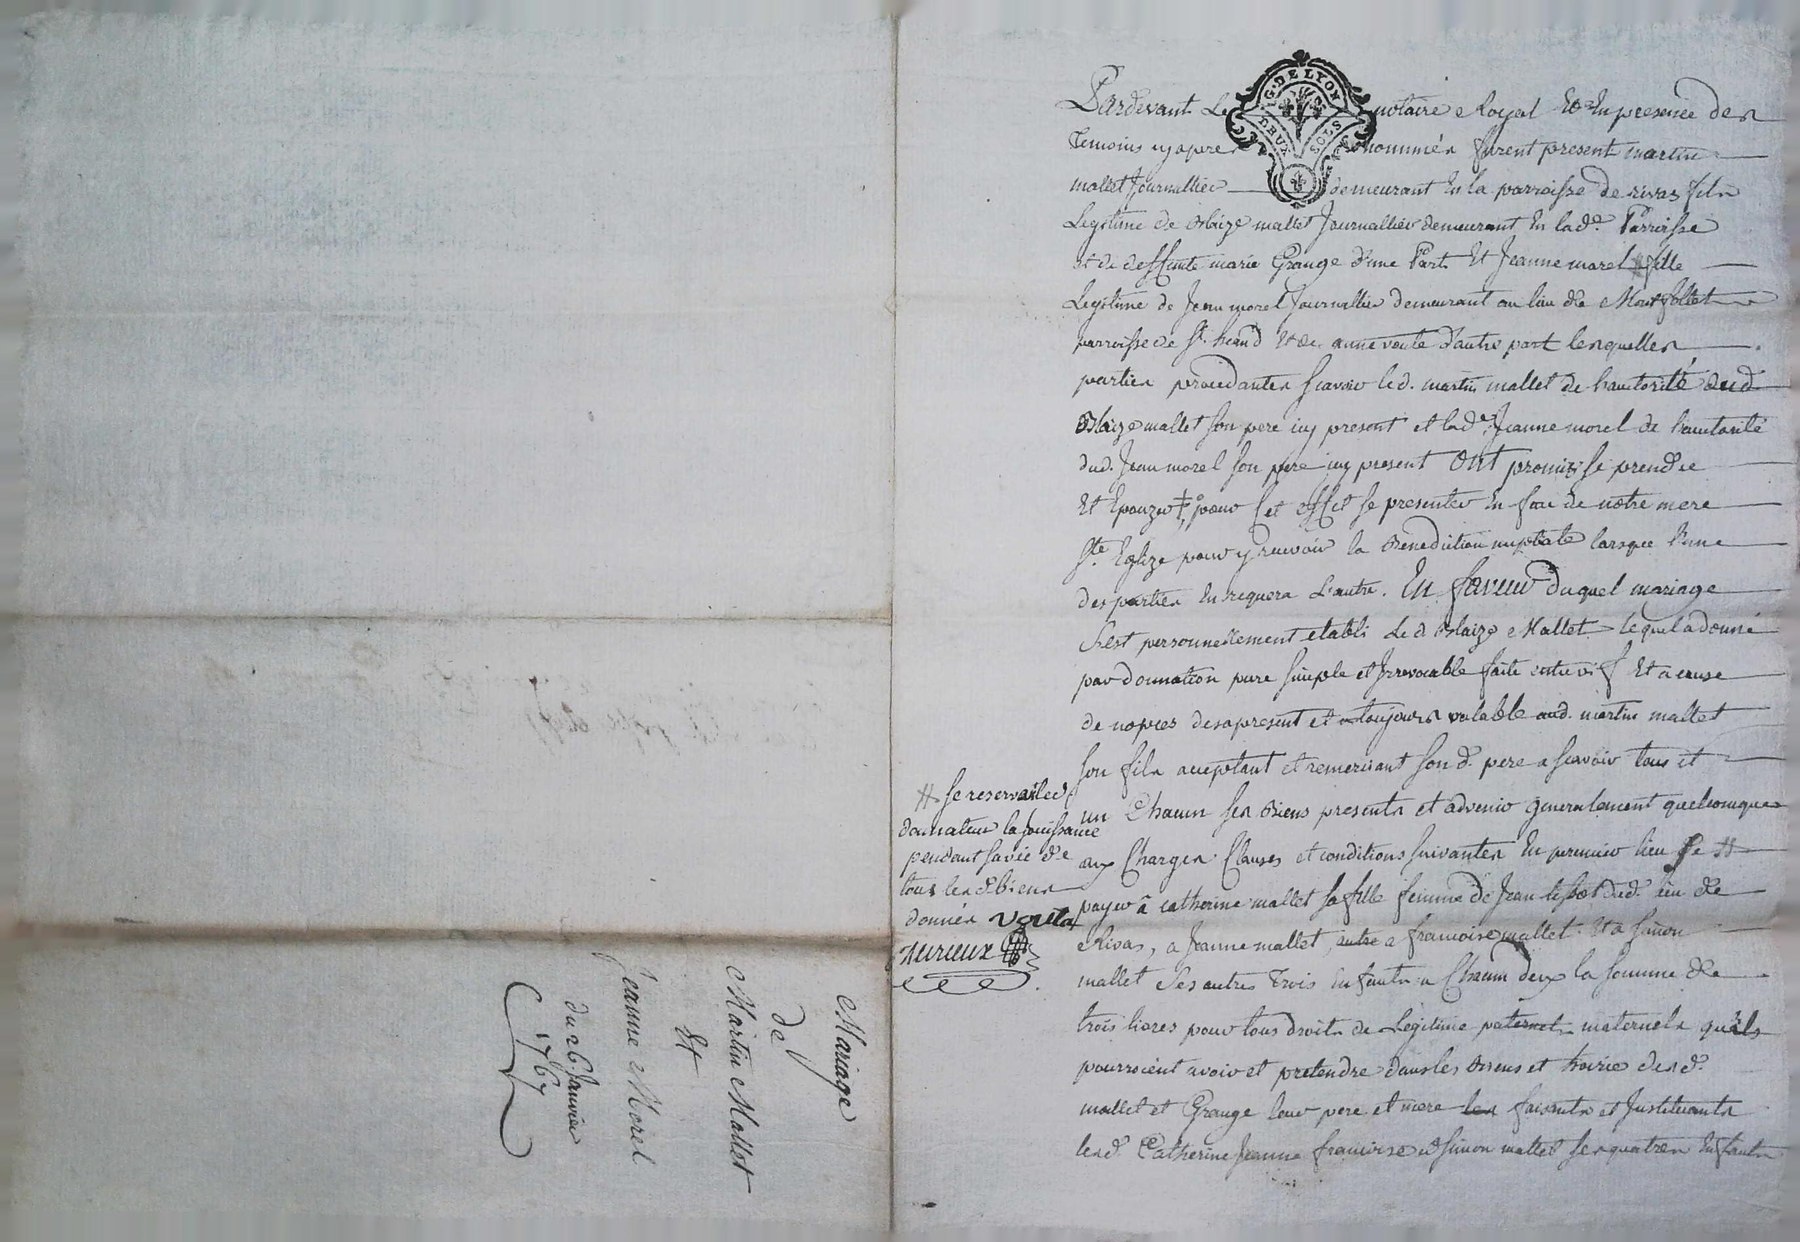 G. DE LYON
DEUX SOLS
Pardevant Le notaire Royal Et En presence des
Temoins cy apres nommés furent present martin
mallet Journallier demeurant En la parroisse de rivas fils
Legitime de Blaize mallet Journallier demeurant En lad. Parroisse
et de deffunte marie Grange d'une Part Et Jeanne morel fille
Legitime de Jean morel Journallier demeurant au lieu de
parroisse de St. heand Et de anne d'autre part lesquelles
parties procedantes scavoir led. martin mallet de l'autorité dud.
Blaize mallet son pere icy present et lad. Jeanne morel de l'autorité
dud. Jean morel son pere icy present Ont promis se prendre
Et Epouzer pour Cet effet se presenter En face de notre mere
Ste. Eglize pour y recevoir la Benediction nuptiale lorsque l'une
des parties En requera L'autre. En faveur duquel mariage
s'est personnellement etabli Led Blaize Mallet lequel a donné
par donnation pure simple et Irrevocable faite entre vif Et a cause
de nopces des apresent et a toujours valable aud. martin mallet
son fils acceptant et remerciant son d. pere a scavoir tous et
un Chacun ses Biens presents et advenir generalement quelconques
aux Charges Clauses et conditions suivantes En premier lieu #
payer à catherine mallet sa fille femme de Jean dud. lieu de
Rivas, a Jeanne mallet, autre a francoise mallet Et a Simon
mallet Ses autres Trois Enfants a Chacun deux la somme de
trois livres pour tous droits de Legitime paternels maternels quils
pourroient avoir et pretendre dans les Biens et hoirie desd.
mallet et Grange leur pere et mere les faisants et Instituants
lesd. Catherine Jeanne francoise et Simon mallet ses quatres Enfants
# se reservant led.
donnateur la jouissance
pendant sa vie de
tous lesd. biens
donnés
Mariage
de
Martin Mallet
Et
Jeanne Morel
du 26 Janvier
1767